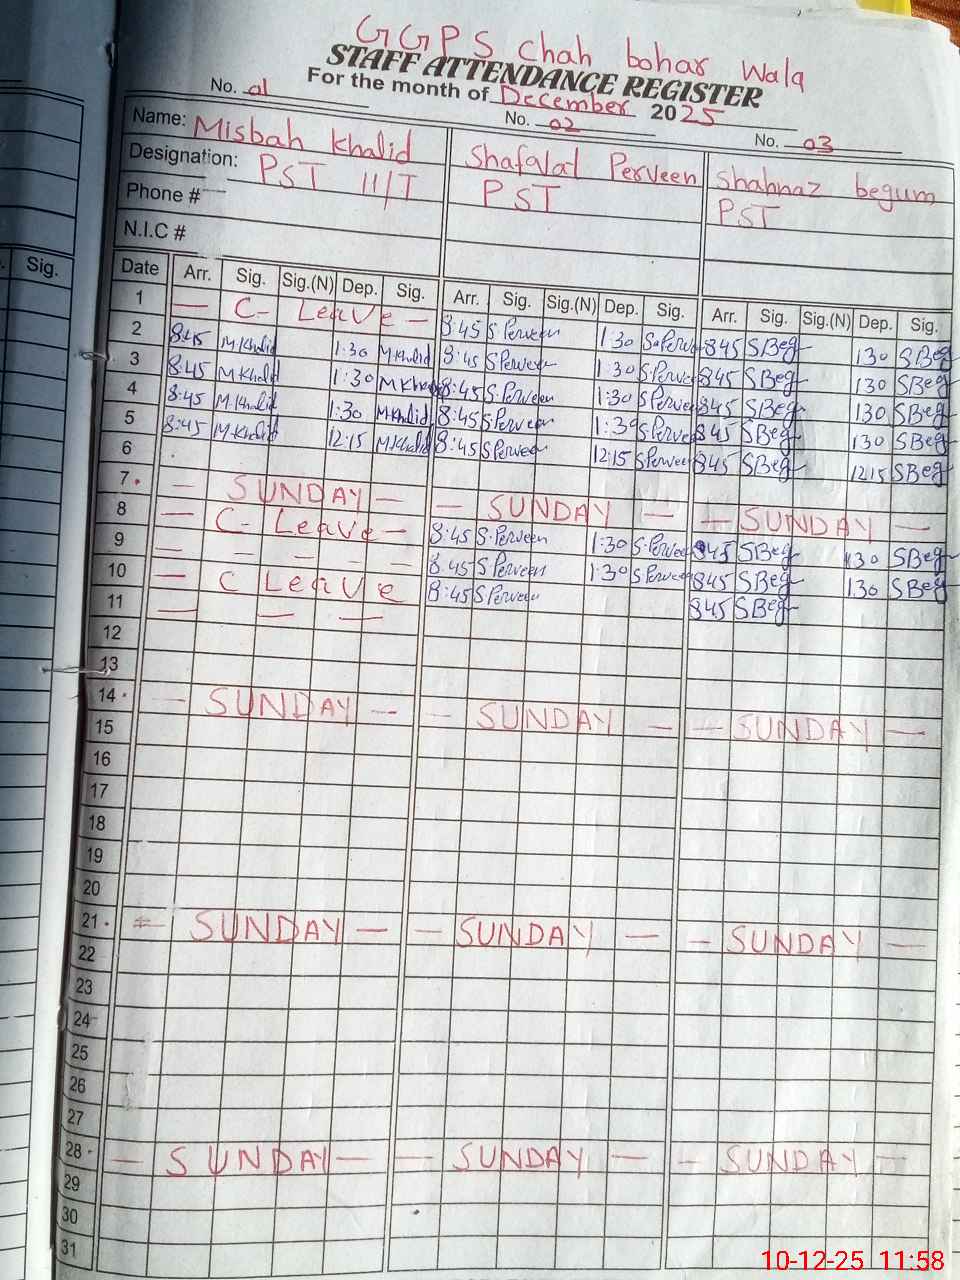 GGPS chah bohar wala
STAFF ATTENDANCE REGISTER
For the month of December 2025
No. 01 No. 02 No. 03
Name: Misbah Khalid Shafalal Perveen Shahnaz begum
Designation: PST 11/I PST PST
Phone #
N.I.C #
Sig.
Date Arr. Sig. Sig.(N) Dep. Sig. Arr. Sig. Sig.(N) Dep. Sig. Arr. Sig. Sig.(N) Dep. Sig.
1 — C- Leave — 8:45 S Perveen 1:30 S.Perveen 845 SBeg 130 SBeg
2 8:45 M Khalid 1:30 M Khalid 8:45 S Perveen 1:30 S.Perveen 845 SBeg 130 SBeg
3 8:45 M Khalid 1:30 M Khalid 8:45 S.Perveen 1:30 S.Perveen 845 SBeg 130 SBeg
4 8:45 M.Khalid 1:30 M Khalid 8:45 S.Perveen 1:30 S.Perveen 845 SBeg 130 SBeg
5 8:45 M.Khalid 12:15 M.Khalid 8:45 S Perveen 12:15 S Perveen 845 SBeg 1215 SBeg
6
7 — SUNDAY — — SUNDAY — — SUNDAY —
8 — C- Leave — 8:45 S.Perveen 1:30 S.Perveen 845 SBeg 130 SBeg
9 — — — — 8:45 S.Perveen 1:30 S Perveen 845 SBeg 1.30 SBeg
10 — C Leave 8:45 S Perveen 845 SBeg
11 — — —
12
13
14 — SUNDAY — — SUNDAY — — SUNDAY —
15
16
17
18
19
20
21 — SUNDAY — — SUNDAY — — SUNDAY —
22
23
24
25
26
27
28 — SUNDAY — — SUNDAY — — SUNDAY —
29
30
31
10-12-25 11:58